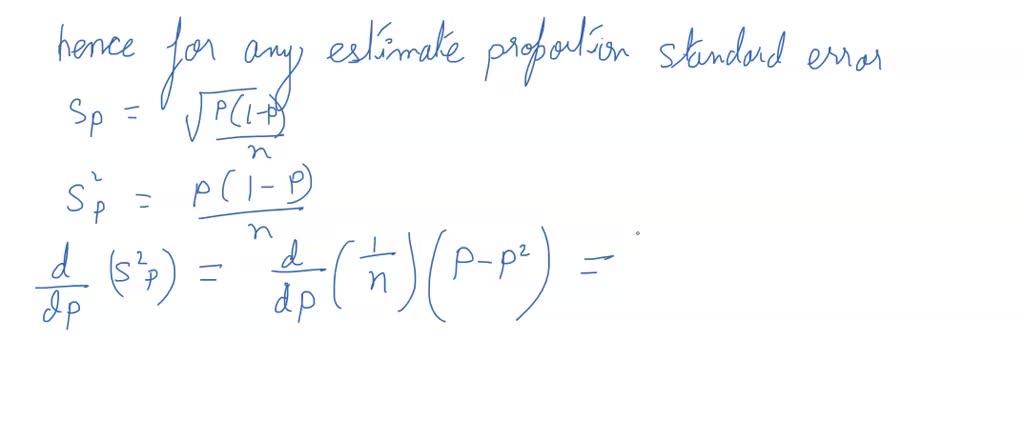 hence for any estimate proportion standard error
Sp = √(P(1-p)/n)
S²p = p(1-p)/n
d/dp (S²p) = d/dp (1/n) (p-p²) =